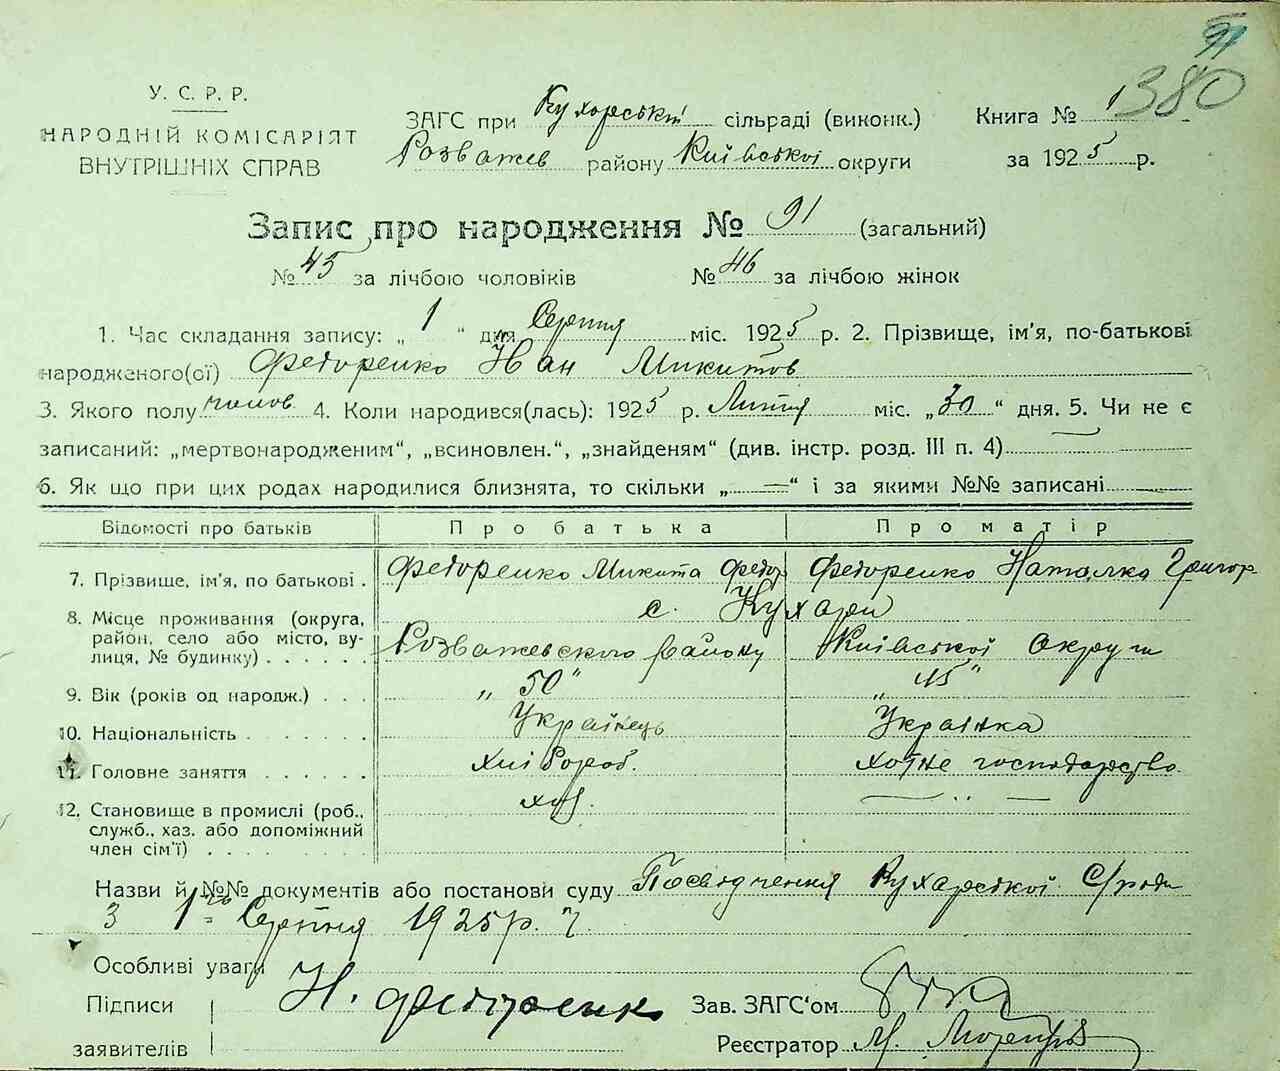 91
380
У. С. Р. Р.
НАРОДНІЙ КОМІСАРІЯТ
ВНУТРІШНІХ СПРАВ
ЗАГС при Кухарській сільраді (виконк.)
Книга № 1
Розважев району Київської округи
за 1925 р.
Запис про народження № 91 (загальний)
№ 45 за лічбою чоловіків № 46 за лічбою жінок
1. Час складання запису: „ 1 “ дня Серпня міс. 1925 р. 2. Прізвище, ім'я, по-батькові
народженого(ої) Федоренко Иван Микитов
3. Якого полу чолов 4. Коли народився(лась): 1925 р. Липня міс. „30“ дня. 5. Чи не є
записаний: „мертвонародженим“, „всиновлен.“, „знайденям“ (див. інстр. розд. III п. 4)
6. Як що при цих родах народилися близнята, то скільки „—“ і за якими №№ записані —
Відомості про батьків Про батька Про матір
7. Прізвище, ім'я, по батькові . Федоренко Микита Федор Федоренко Наталка Григор.
8. Місце проживання (округа, с. Кухари
район, село або місто, ву-
лиця, № будинку) . . . . . . Розважевского району Київської Округи
9. Вік (років од народж.) . . . „ 50“ „ 45“
10. Національність . . . . . . Українець Українка
11. Головне заняття . . . . . . хлібороб. хатне господарство
12. Становище в промислі (роб., хаз.
служб., хаз. або допоміжний
член сім'ї) . . . . . . . .
Назви й №№ документів або постанови суду Посвідчення Кухарської С/ради
з 1го Серпня 1925 р.
Особливі уваги
Підписи Н. Федоренко Зав. ЗАГС‘ом
заявителів Реєстратор М.